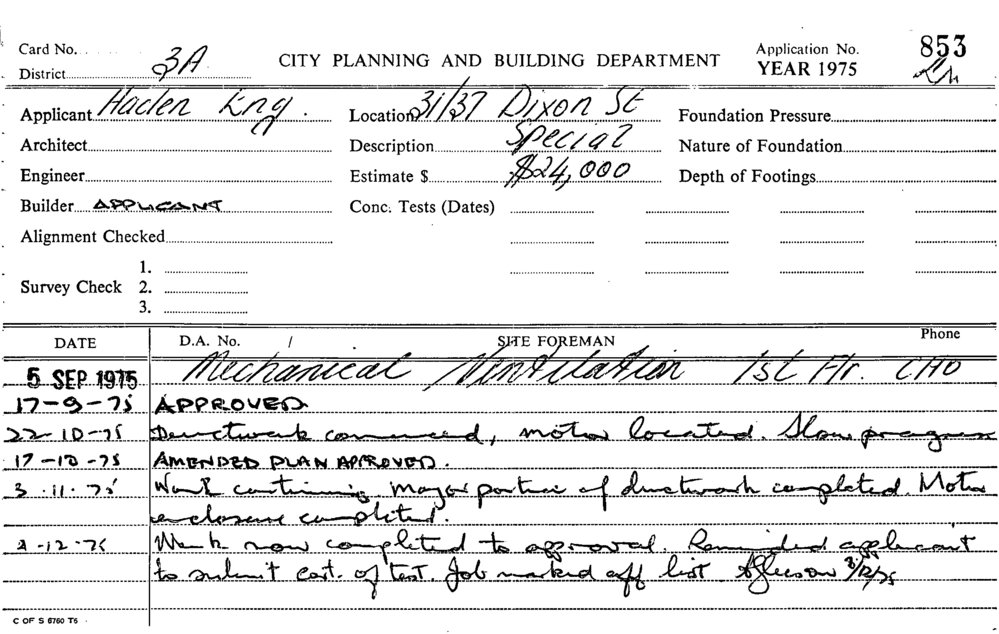 Card No. 3A CITY PLANNING AND BUILDING DEPARTMENT Application No. 853
District YEAR 1975
Applicant Haden Eng. Location 31/37 Dixon St Foundation Pressure
Architect Description Special Nature of Foundation
Engineer Estimate $ $24,000 Depth of Footings
Builder APPLICANT Conc. Tests (Dates)
Alignment Checked
1.
Survey Check 2.
3.
DATE D.A. No. / SITE FOREMAN Phone
5 SEP 1975 Mechanical Ventilation 1st Flr. CHO
17-9-75 APPROVED
22-10-75 Ductwork commenced, motor located. Slow progress
17-10-75 AMENDED PLAN APPROVED.
3.11.75 Work continuing, major portion of ductwork completed. Motor
enclosure completed.
2-12-75 Work now completed to approval. Reminded applicant
to submit cert. of test. Job marked off list 3/12/75
C OF S 6760 T6